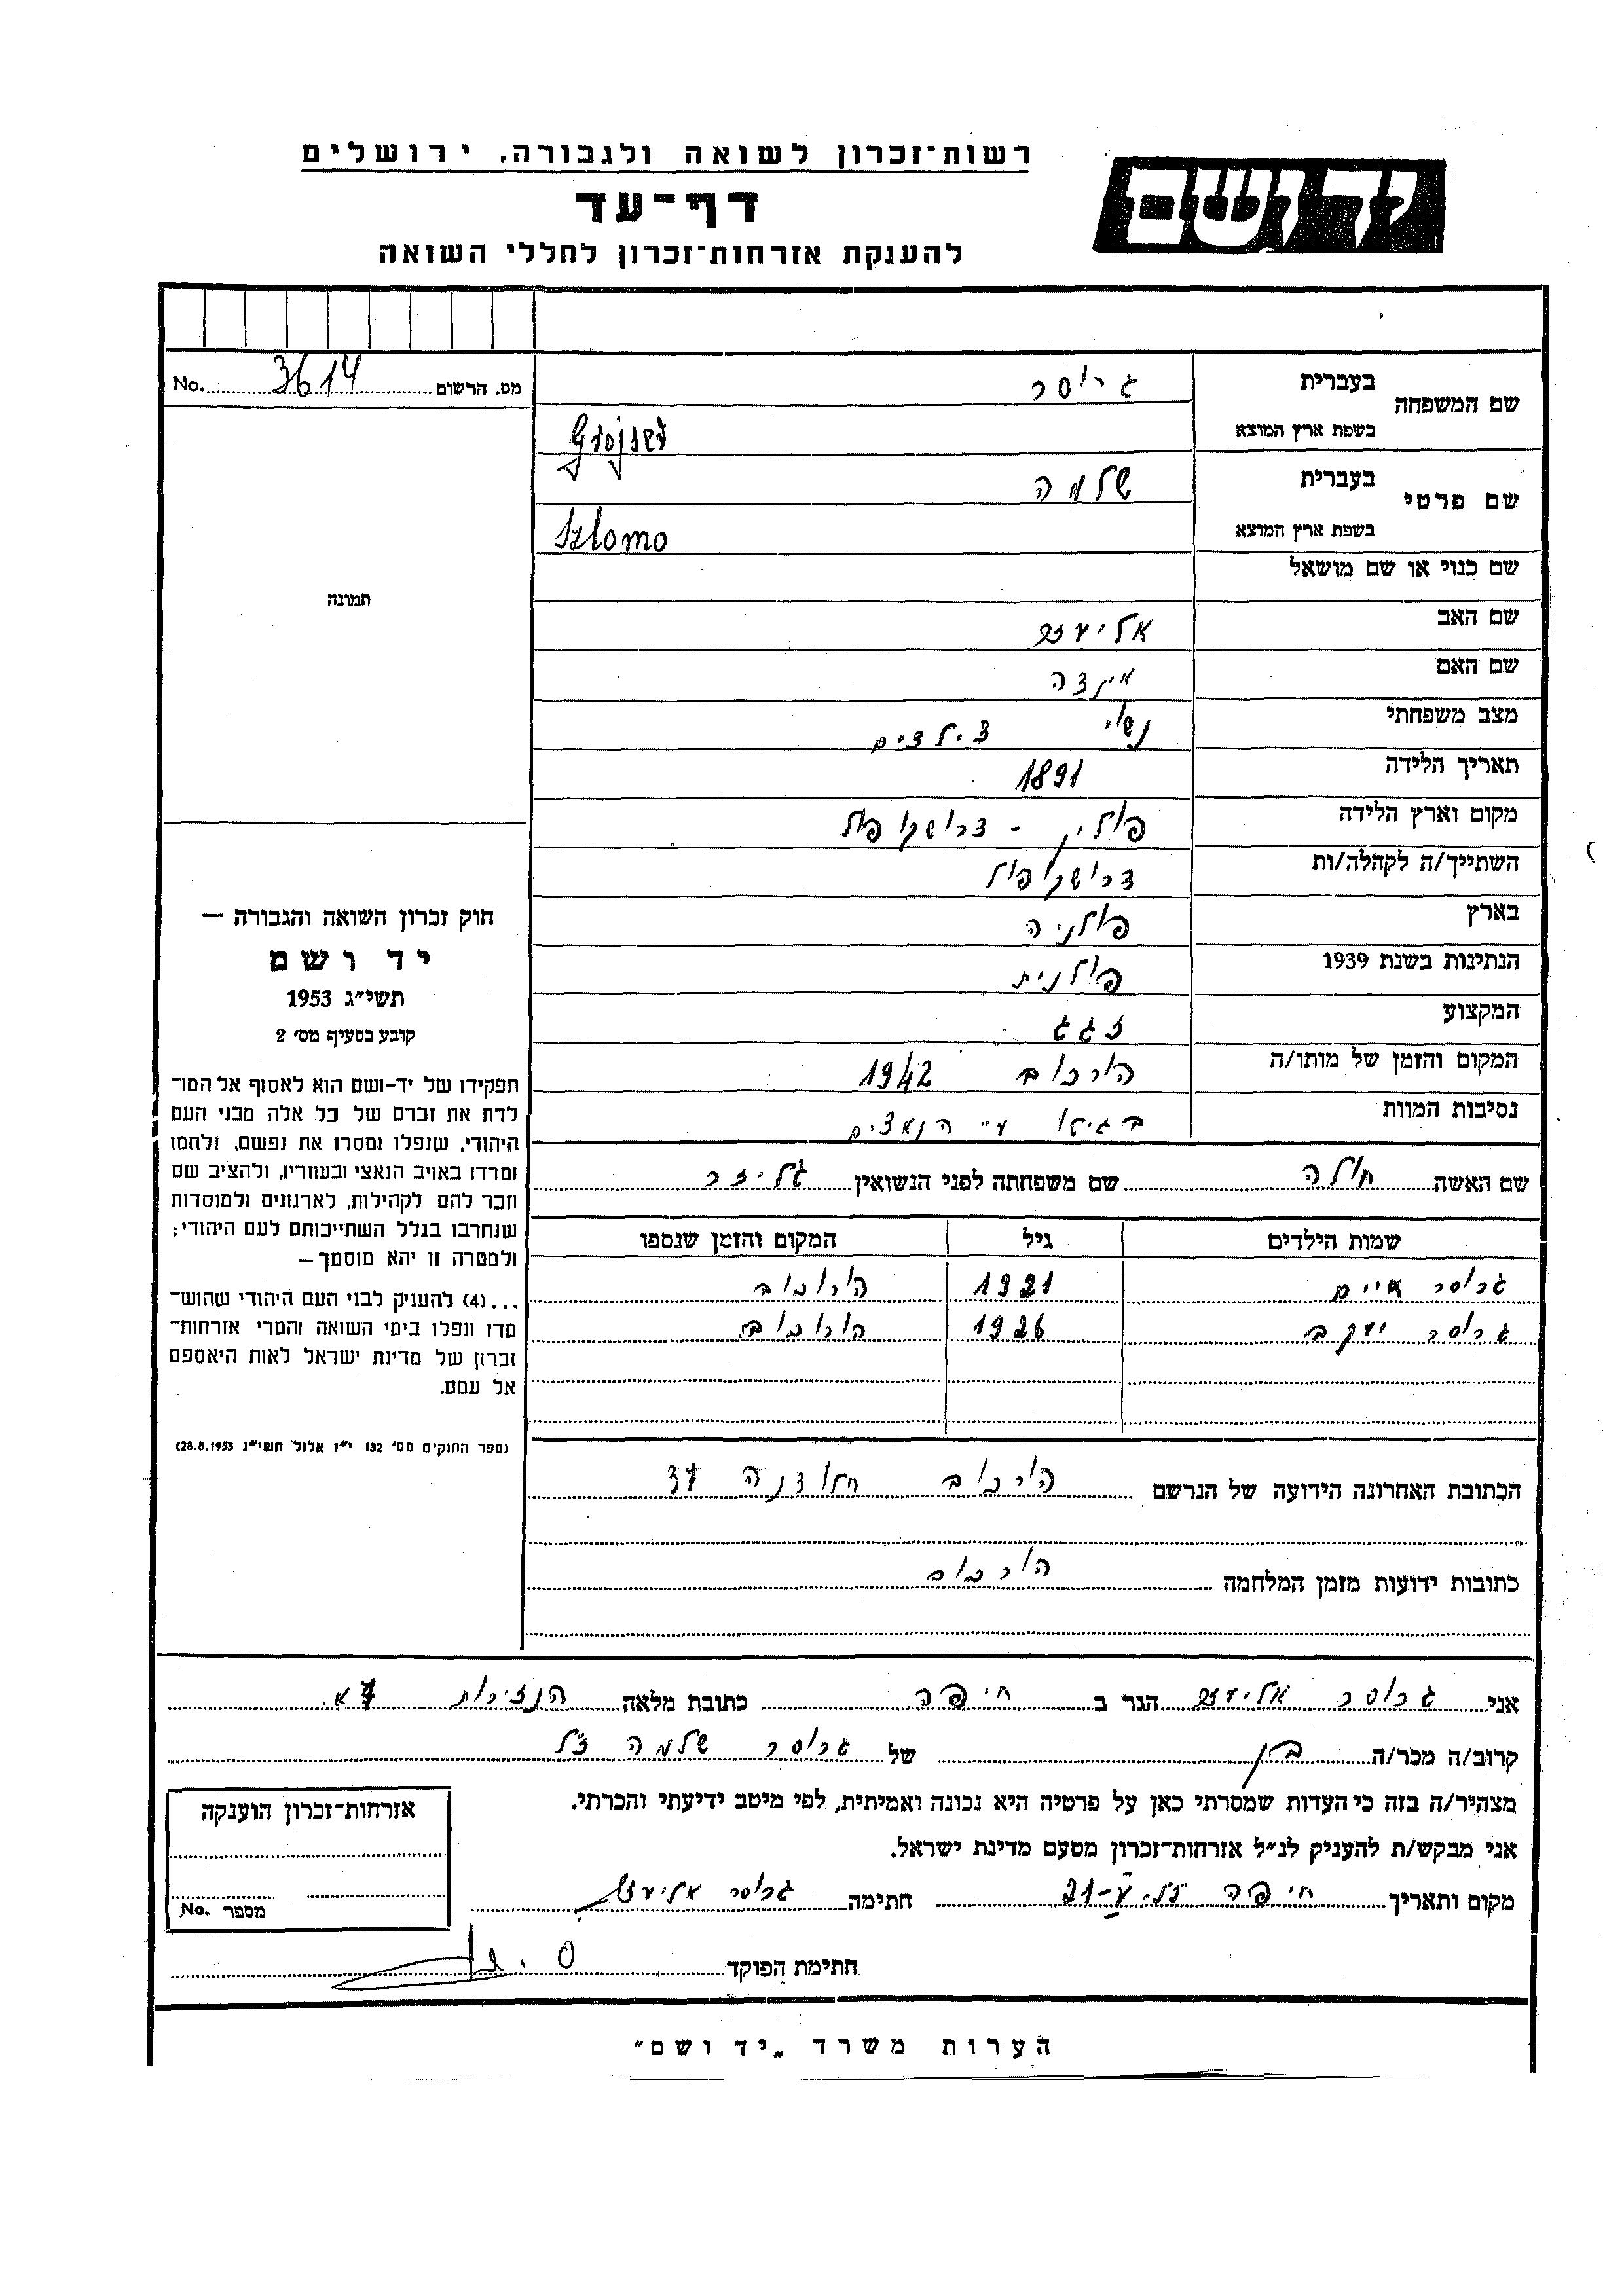 רשות־זכרון לשואה ולגבורה, ירושלים
יד ושם
דף־עד
להענקת אזרחות־זכרון לחללי השואה
מס. הרשום 3614 No.
שם המשפחה
בעברית גרוסר
בשפת ארץ המוצא Grojser
שם פרטי
בעברית שלמה
בשפת ארץ המוצא Szlomo
שם כנוי או שם מושאל
תמונה
שם האב אליעזר
שם האם
מצב משפחתי נשוי 3 ילדים
תאריך הלידה 1891
מקום וארץ הלידה פולין - דרושקופול
השתייך/ה לקהלה/ות דרושקופול
בארץ פולניה
הנתינות בשנת 1939 פולנית
המקצוע זגג
המקום והזמן של מותו/ה הורכוב 1942
נסיבות המוות בגיטו ע"י הנאצים
חוק זכרון השואה והגבורה —
יד ושם
תשי״ג 1953
קובע בסעיף מס׳ 2
תפקידו של יד-ושם הוא לאסוף אל המו־
לדת את זכרם של כל אלה מבני העם
היהודי, שנפלו ומסרו את נפשם, נלחמו
ומרדו באויב הנאצי ובעוזריו, ולהציב שם
וזכר להם לקהילות, לארגונים ולמוסדות
שנחרבו בגלל השתייכותם לעם היהודי;
ולמטרה זו יהא מוסמך—
...(4) להעניק לבני העם היהודי שהוש־
מדו ונפלו בימי השואה והמרי אזרחות־
זכרון של מדינת ישראל לאות היאספם
אל עמם.
(ספר החוקים מס׳ 132 י״ז אלול תשי״ג 28.8.1953)
שם האשה חולה שם משפחתה לפני הנשואין גליזר
שמות הילדים גיל המקום והזמן שנספו
גרוסר חיים 1921 הורוכוב
גרוסר יעקב 1926 הורוכוב
הכתובת האחרונה הידועה של הנרשם הורכוב
כתובות ידועות מזמן המלחמה הורכוב
אני גרוסר אליעזר הגר ב חיפה כתובת מלאה הנזירות
קרוב/ה מכר/ה בן של גרוסר שלמה ז"ל
מצהיר/ה בזה כי העדות שמסרתי כאן על פרטיה היא נכונה ואמיתית, לפי מיטב ידיעתי והכרתי.
אני מבקש/ת להעניק לנ״ל אזרחות־זכרון מטעם מדינת ישראל.
מקום ותאריך חיפה חתימה גרוסר אליעזר
אזרחות־זכרון הוענקה
מספר No.
חתימת הפוקד
הערות משרד „יד ושם״